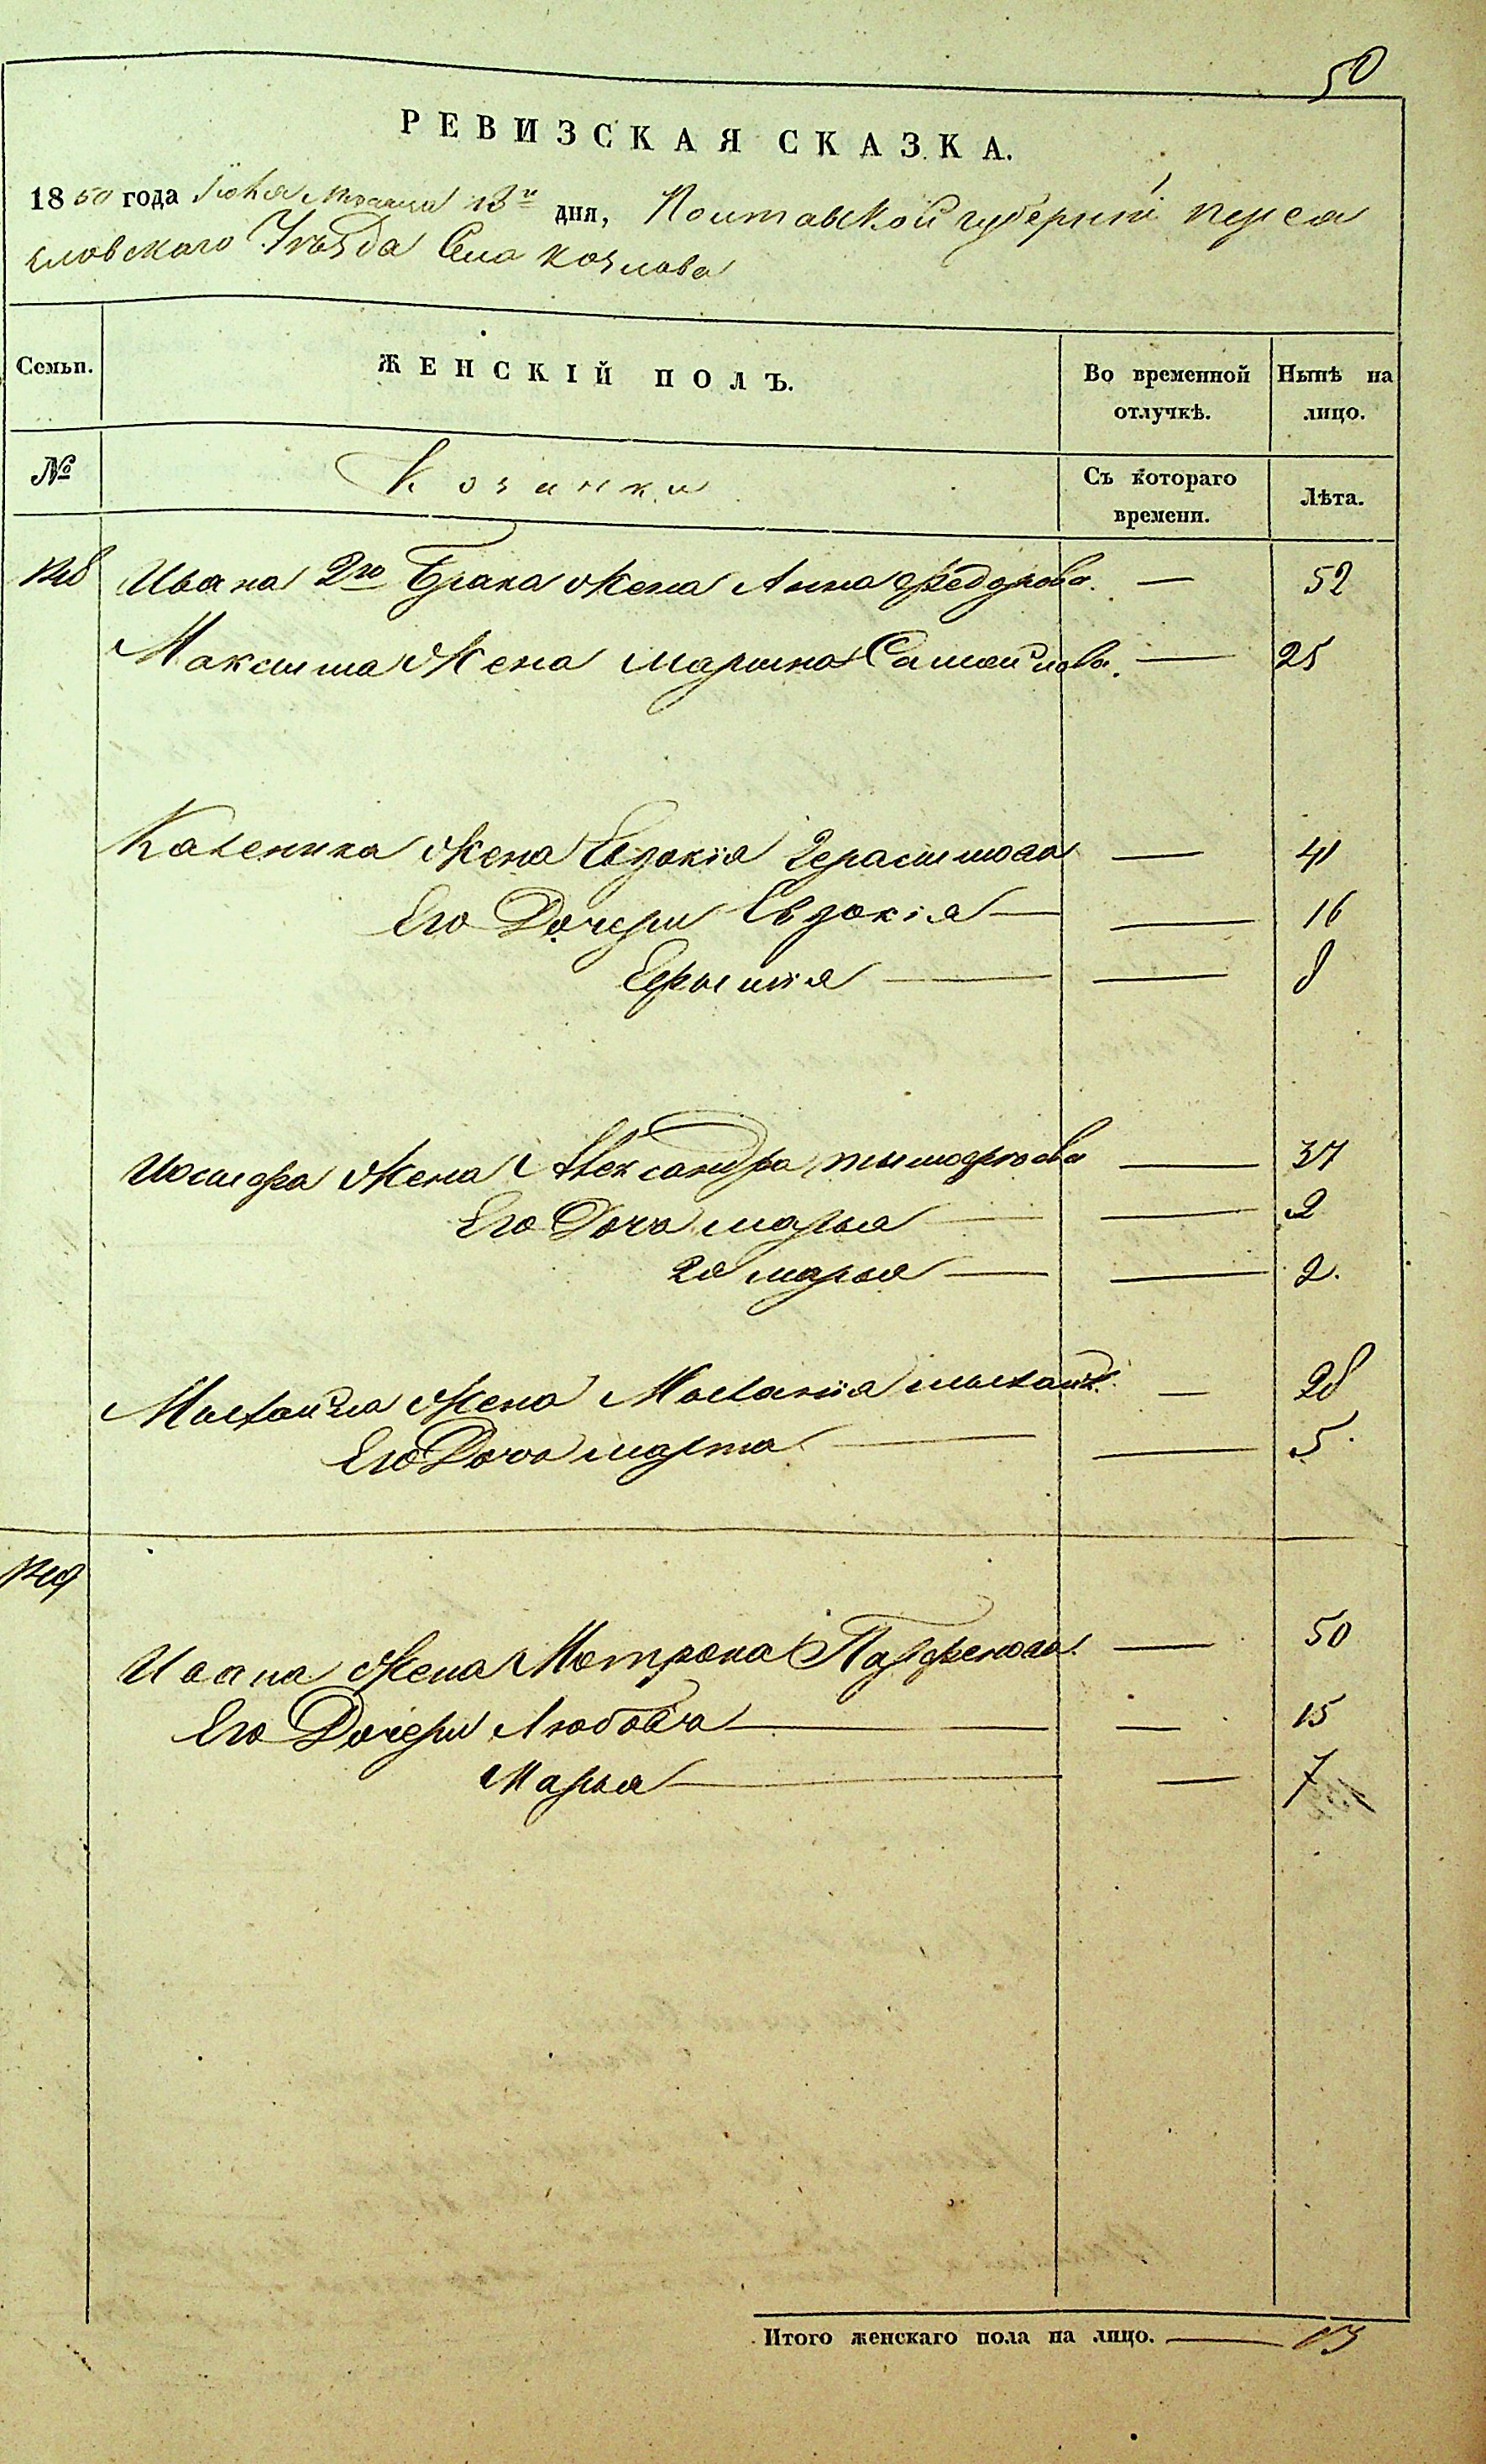 50
РЕВИЗСКАЯ СКАЗКА.
1850 года Іюня Месяца 13го дня, Полтавской губерніи перея
словскаго Уезда Села Козлова
Семьи.
ЖЕНСКІЙ ПОЛЪ.
Во временной отлучкѣ.
Нынѣ на лицо.
№
Козачки
Съ котораго времени.
Лѣта.
Ивана 2го Брака Жена Анна Федорова — 52
Максима Жена марина Самойлова — 25
Каленика Жена Евдокія Герасимова — 41
Его Дочери Евдокія — 16
8
Иосифа Жена Александра тимофеова — 37
Его Дочь марья — 2
2я марья — 2.
Михаила Жена Маланія михайл. — 28
Его Дочь марта — 5
Ивана Жена Мотрона Парфенова — 50
Его Дочери Любовь — 15
Марья — 7
Итого женскаго пола на лицо. — 13